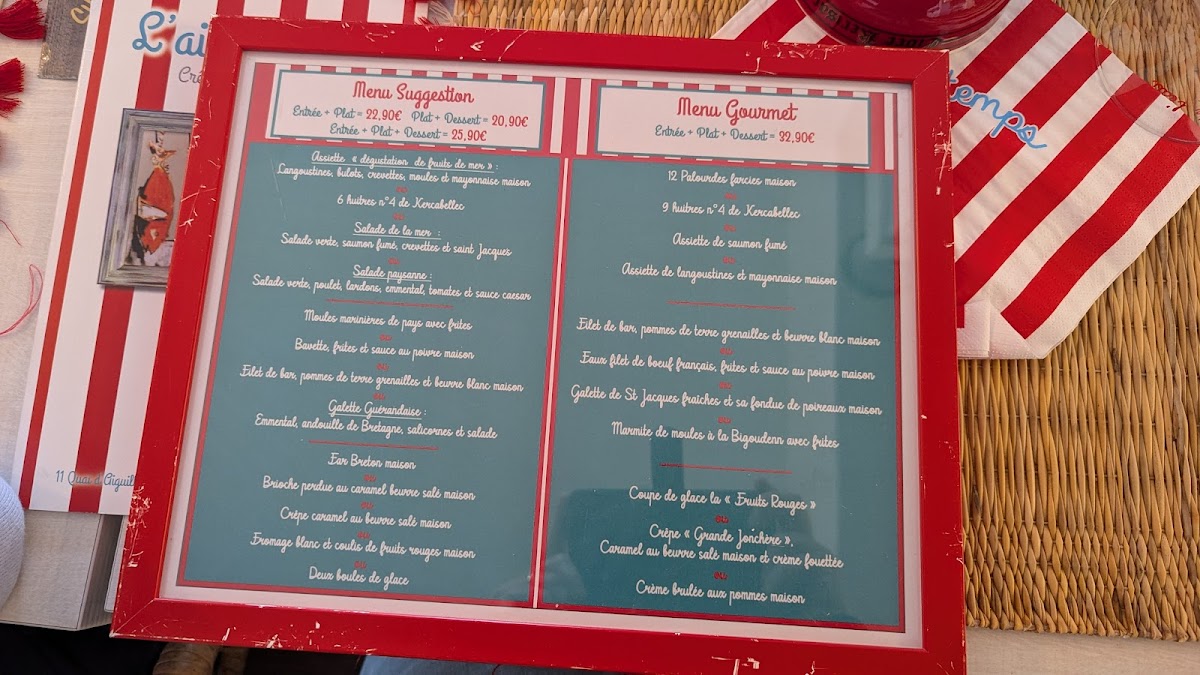 L'ai
Crê
11 Quai d'Aiguil
temps
Menu Suggestion
Entrée + Plat = 22,90€ Plat + Dessert = 20,90€
Entrée + Plat + Dessert = 25,90€
Assiette « dégustation de fruits de mer » :
Langoustines, bulots, crevettes, moules et mayonnaise maison
ou
6 huitres n°4 de Kercabellec
ou
Salade de la mer :
Salade verte, saumon fumé, crevettes et saint Jacques
ou
Salade paysanne :
Salade verte, poulet, lardons, emmental, tomates et sauce caesar
Moules marinières de pays avec frites
ou
Bavette, frites et sauce au poivre maison
ou
Filet de bar, pommes de terre grenailles et beurre blanc maison
ou
Galette Guérandaise :
Emmental, andouille de Bretagne, salicornes et salade
Far Breton maison
ou
Brioche perdue au caramel beurre salé maison
ou
Crêpe caramel au beurre salé maison
ou
Fromage blanc et coulis de fruits rouges maison
ou
Deux boules de glace
Menu Gourmet
Entrée + Plat + Dessert = 32,90€
12 Palourdes farcies maison
ou
9 huitres n°4 de Kercabellec
ou
Assiette de saumon fumé
ou
Assiette de langoustines et mayonnaise maison
Filet de bar, pommes de terre grenailles et beurre blanc maison
ou
Faux filet de boeuf français, frites et sauce au poivre maison
ou
Galette de St Jacques fraîches et sa fondue de poireaux maison
ou
Marmite de moules à la Bigoudenn avec frites
Coupe de glace la « Fruits Rouges »
ou
Crêpe « Grande Jonchère »,
Caramel au beurre salé maison et crème fouettée
ou
Crème brulée aux pommes maison